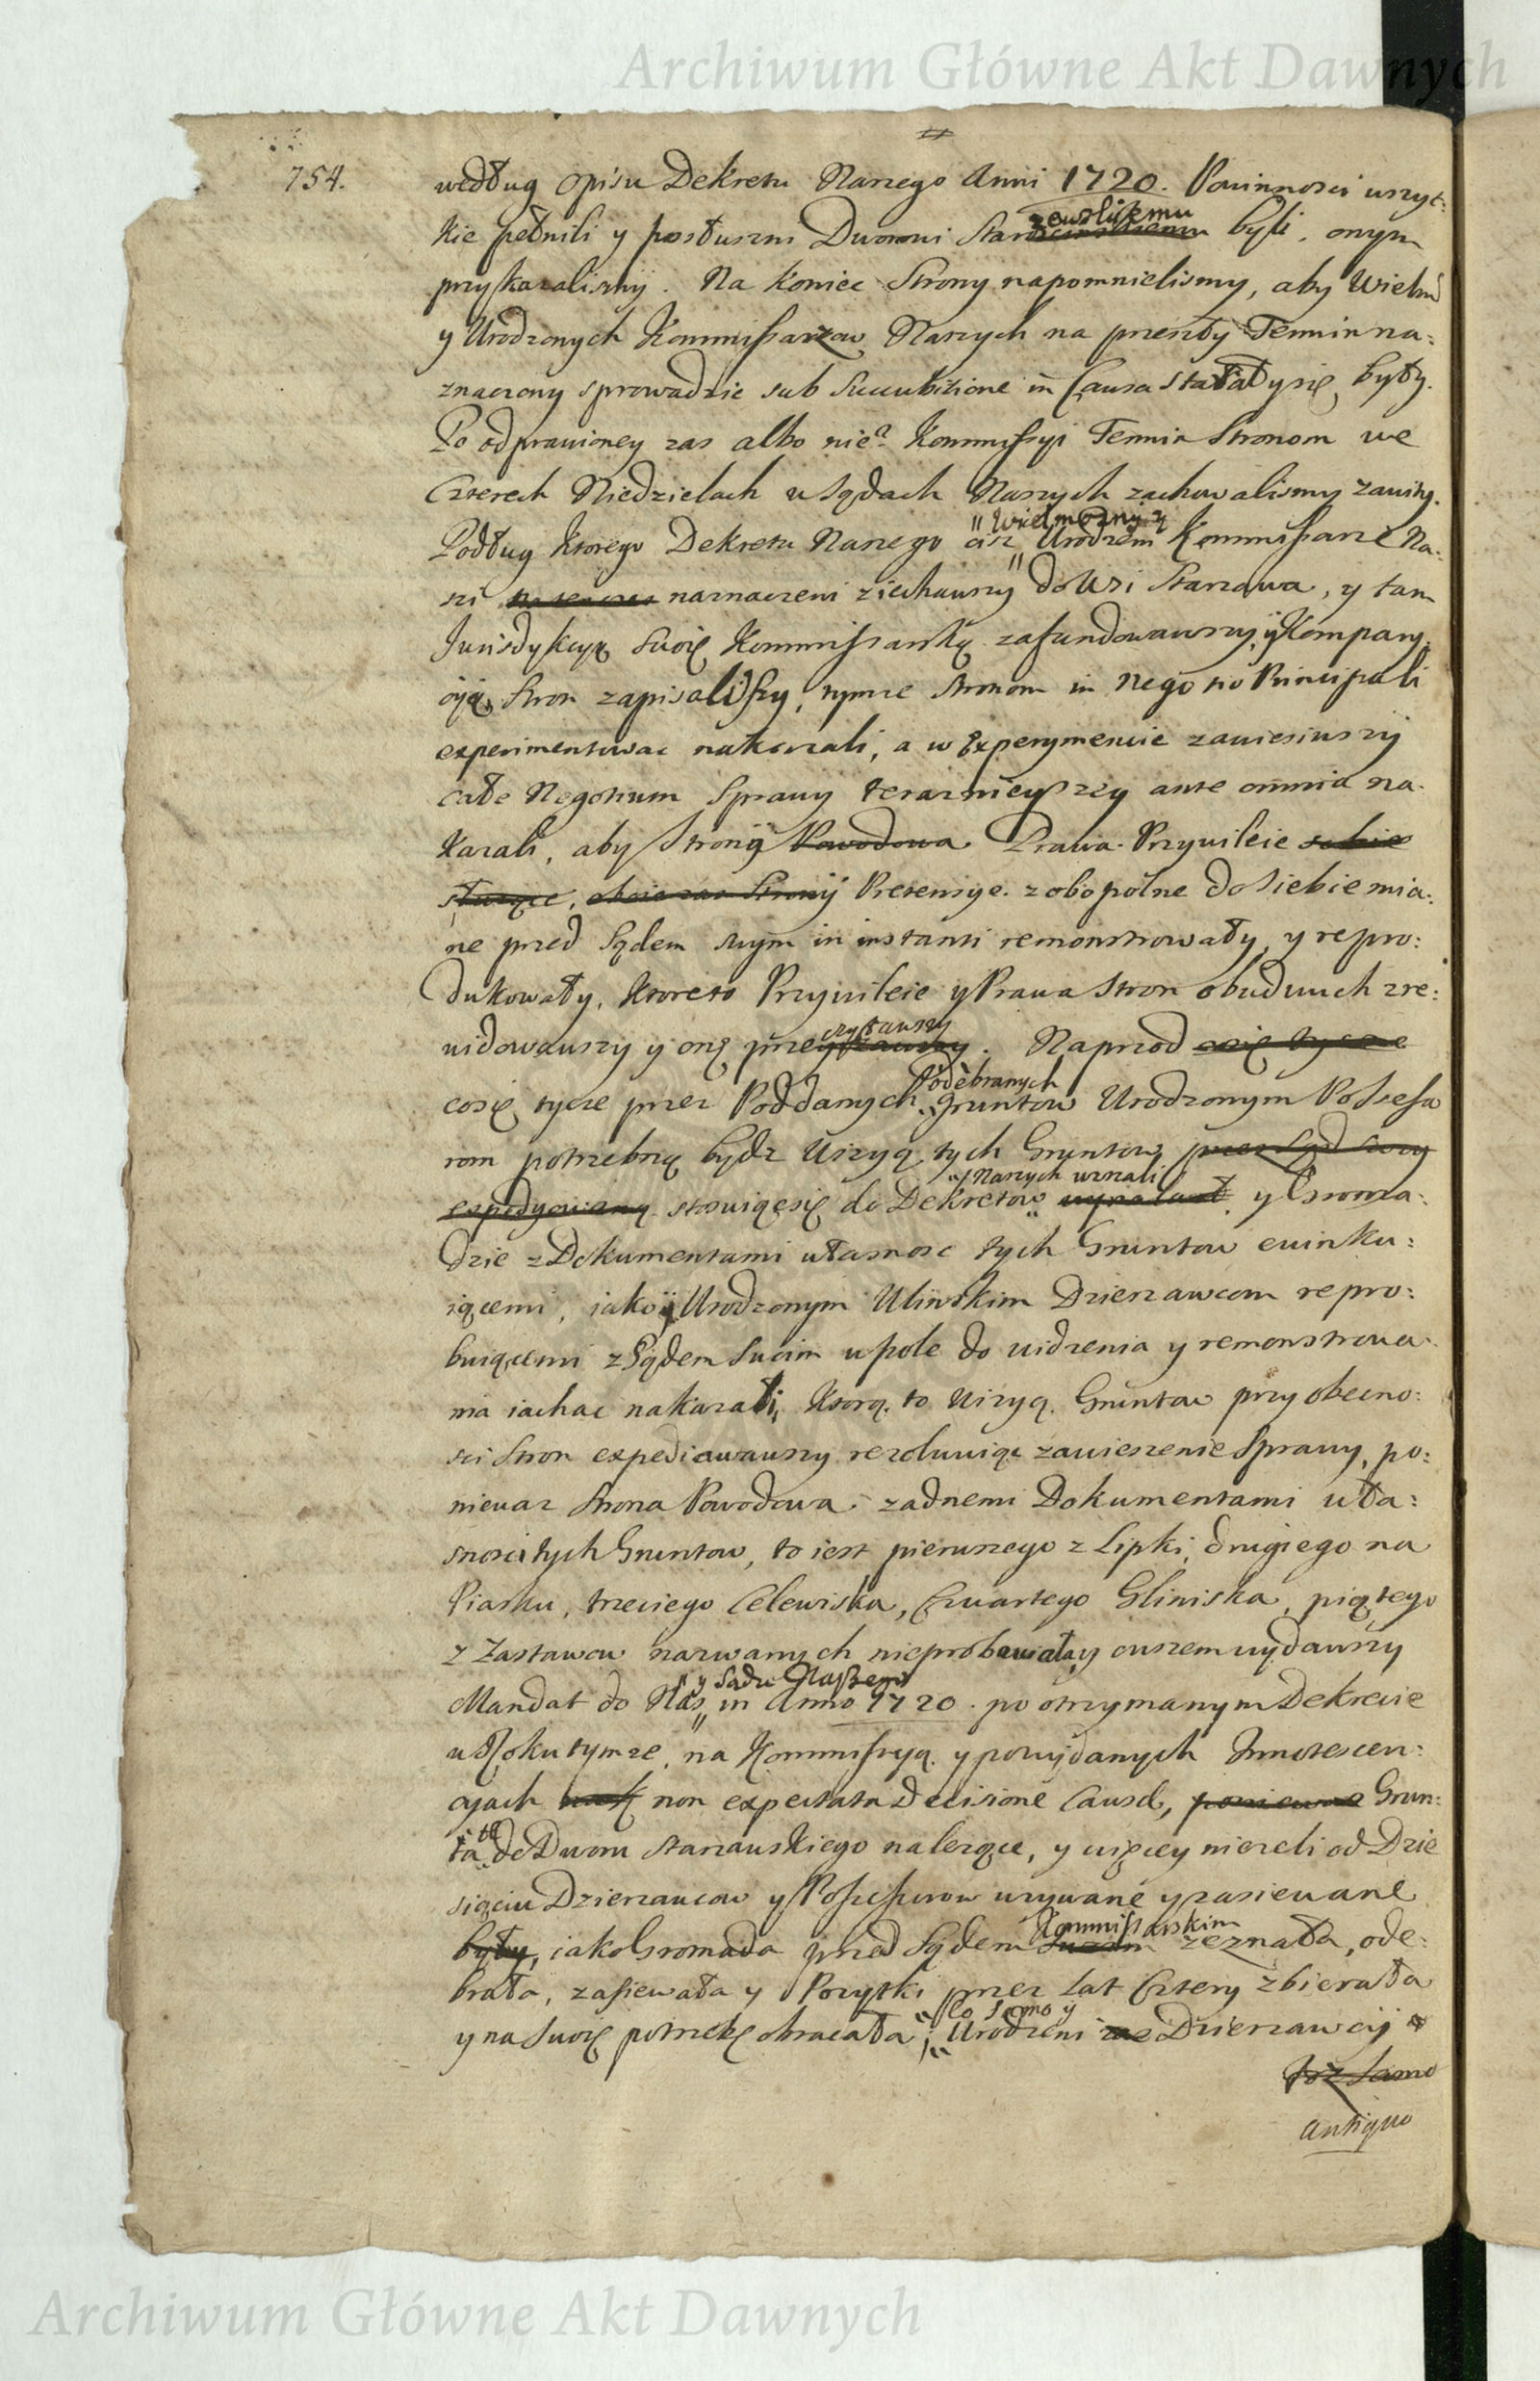 Archiwum Główne Akt Dawnych
754.
według opisu Dekretu Naszego Anni 1720. Powinnosci wszyt:
kie pełnili y posłuszni Dworowi Starzewskiemu byli, onym
przykazalismy. Na koniec Strony napomnielismy, aby Wielm
y Urodzonych Kommissarzow Naszych na przeszły Termin na:
znaczony sprowadzic sub Succubitione in Causa stałały się były.
Po odprawioney zas albo nie? Kommissyi Termin Stronom we
Czterech Niedzielach u Sądach Naszych zachowalismy zawity.
"Wielmozny y
Podług ktorego Dekretu Naszego ciż Urodzeni Kommissarze Na:
si naznaczeni ziechawszy do Wsi Starzawa, y tam
Jurisdykcyą swoię Kommissarską zafundowawszy, y Kompary:
cyą Stron zapisaliszy, tymze Stronom in Negotio Principali
experimentowac nakazali, a w Experymencie zawiesiwszy
całe Negotium Sprawy teraznieyszey ante omnia na:
kazali, aby Strony Powodowa Prawa Przywileie sobie
słuzące, obie zas Strony Pretensye zobopolne do siebie mia:
ne przed Sądem swym in instanti remonstrowały, y repro:
dukowały, ktoreto Przywileie y Prawa Stron obudwuch zre:
czytawszy
widowawszy y onę prze. Naprzod
odebranych
cosię tycze przez Poddanych Gruntow Urodzonym Possesso
rom potrzebną bydz Wizyą tych Gruntow przez Sąd swoy
Naszych uznali
expedyowaną stosuiąc się do Dekretow y Groma:
dzie z Dokumentami własnosc tych Gruntow ewinku:
iącemi, iako y Urodzonym Ulinskim Dzierzawcom repro:
buiącemi z Sądem swoim w pole do widzenia y remonstrowa:
nia iachac nakazali, ktorą to Wizyą Gruntow przy obecno:
sci Stron expediowawszy rezolwuiąc zawieszenie Sprawy, po:
niewaz Strona Powodowa zadnemi Dokumentami wła:
snosci tych Gruntow, to iest pierwszego z Lipki, drugiego na
Piasku, trzeciego Celewiska, Czwartego Gliniska, piątego
z Zastawow nazwanych nieprobowała y owszem wydawszy
y Sądu Naszego
Mandat do Nas in Anno 1720. po otrzymanym Dekrecie
w Roku tymze, na Kommissyą y powydanych Innotescen:
cyach non expectata Decisione Causæ, poniewaz Grun:
ta te do Dworu Starzawskiego nalezące, y więcey niezeli od Dzie
sięciu Dzierzawcow y Possessorow uzywane y zasiewane
Kommissarskim
były, iako Gromada przed Sądem swoim zeznała, ode:
brała, zasiewała y Pozytki przez lat Cztery zbierała
to samo y
y na swoię potrzebę obracała; Urodzeni zas Dzierzawcy
toz samo
antiquo
Archiwum Główne Akt Dawnych